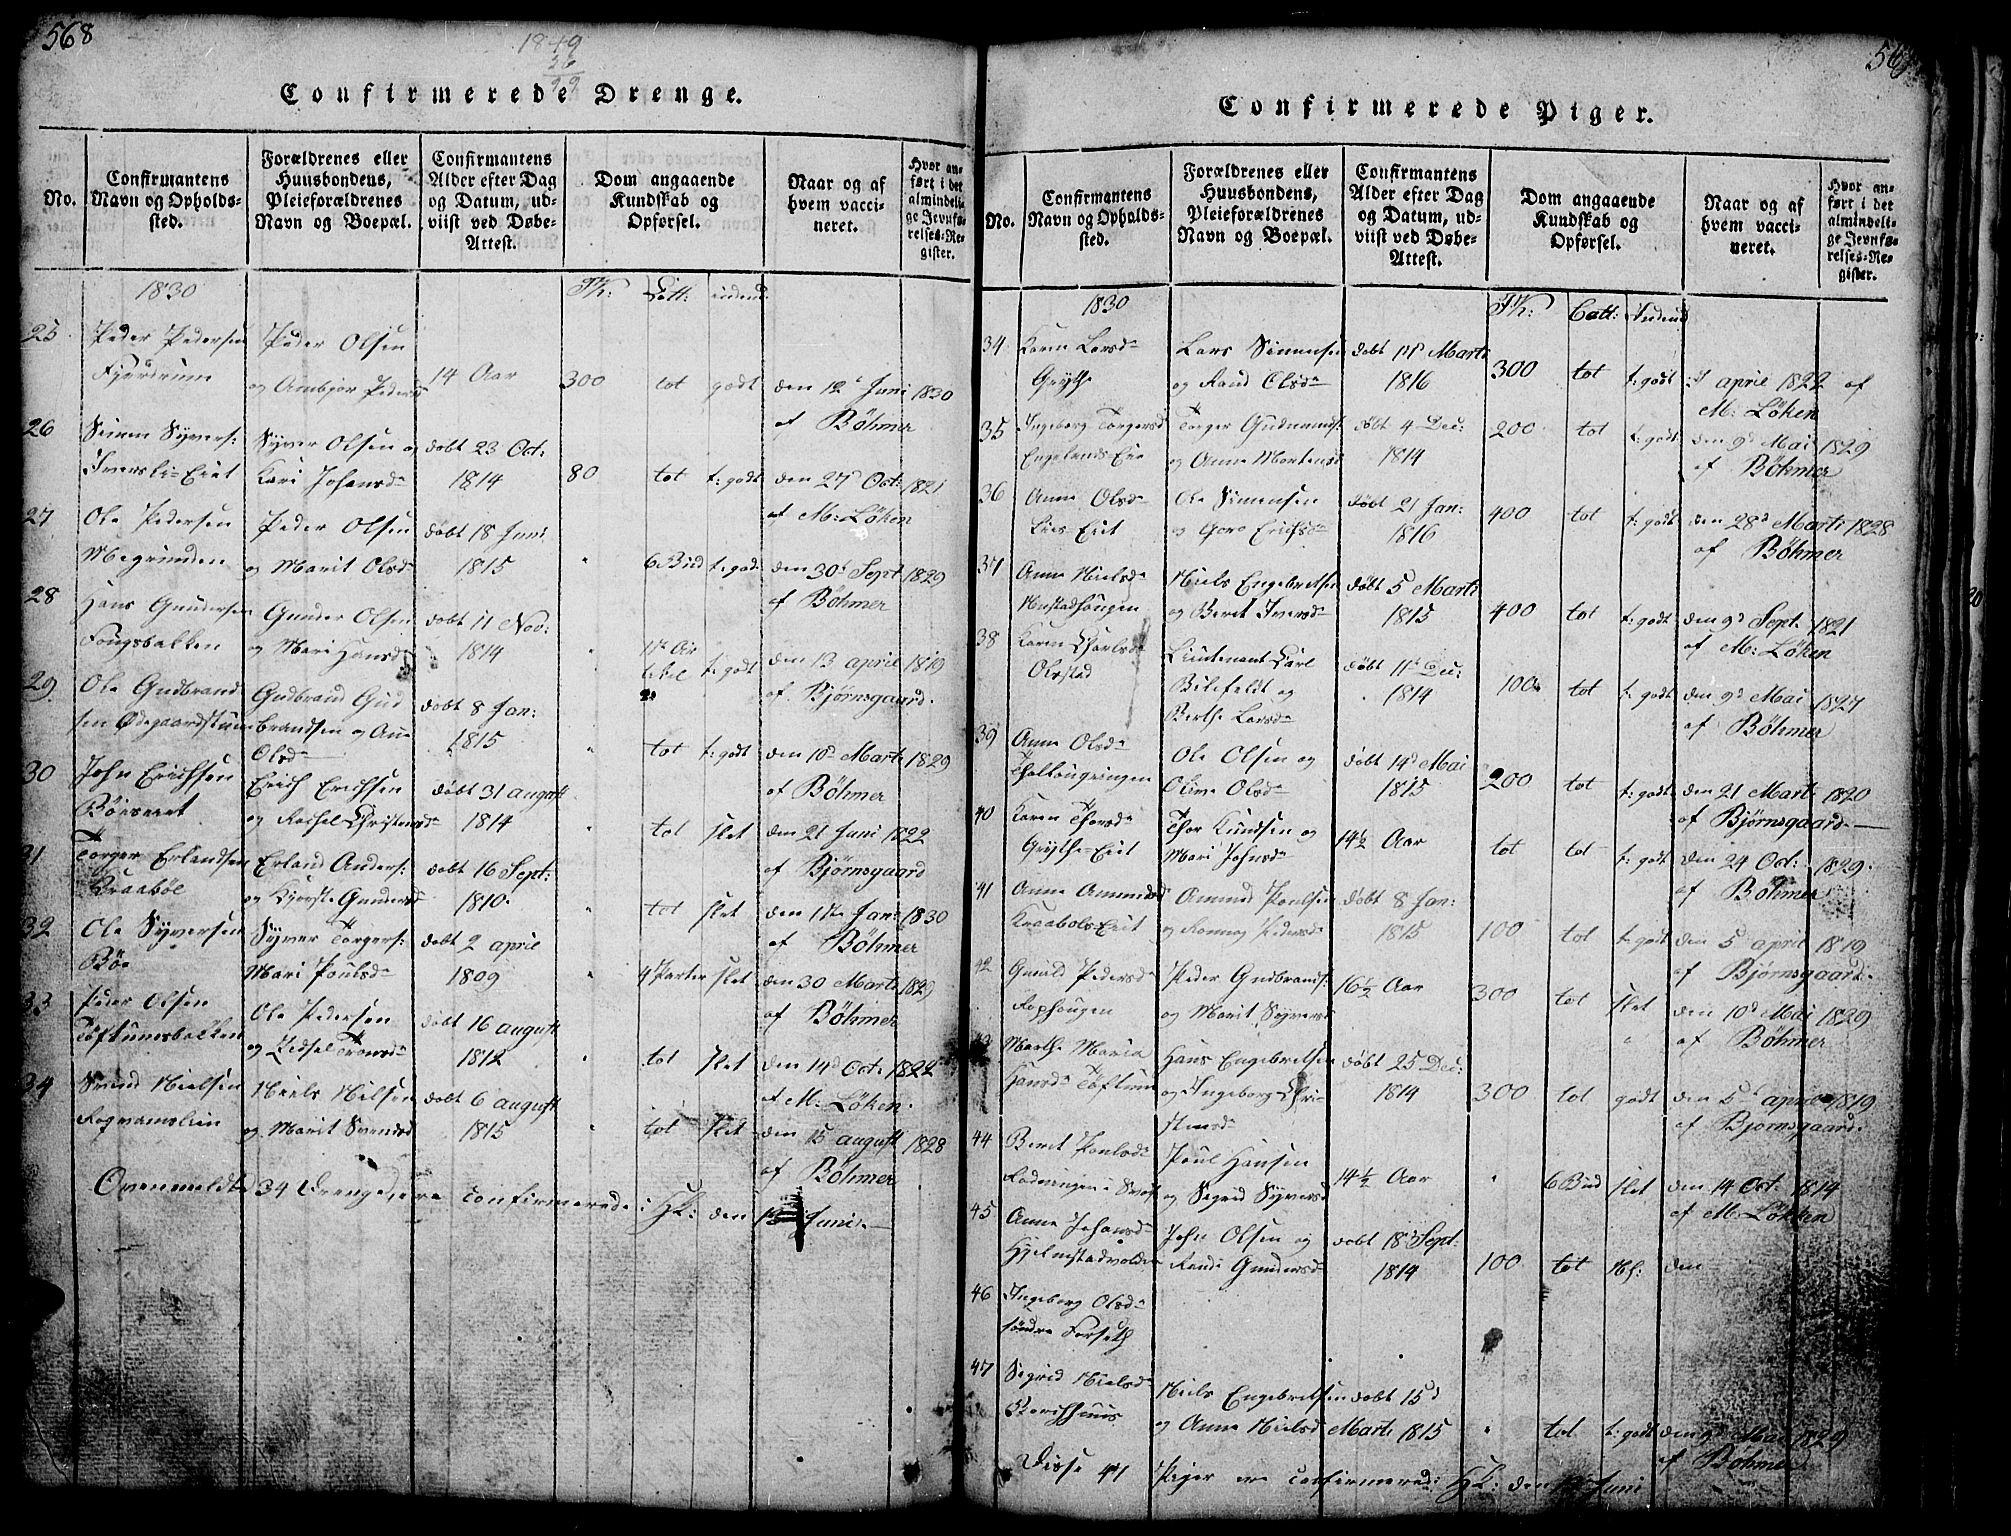 568
1849
26
99
Confirmerede Drenge.
No.
Confirmantens Navn og Opholdssted.
Forældrenes eller Huusbondens, Pleieforældrenes Navn og Boepæl.
Confirmantens Alder efter Dag og Datum, udviist ved Døbe-Attest.
Dom angaaende Kundskab og Opførsel.
Naar og af hvem vaccineret.
Hvor anført i det almindelige Jevnførelses-Register.
1830
25 Peder Pedersen Peder Olsen
og Ambjør Peders 14 Aar 300 tot godt den 12 Juni 1820
af Böhmer
26 Simen Syvers: Syver Olsen og døbt 23 Oct:
Iversli-Eiet Kari Johansd 1814 80 tot t: godt den 27 Oct: 1821
af M: Löken
27 Ole Pedersen Peder Olsen døbt 18 Juni
Megrunden og Marit Olsd 1815 " 6 Bud t: godt den 30 Sept 1829
af Böhmer
28 Hans Gundersen Gunder Olsen døbt 11 Nov:
Fougsbakken og Mari Hansd 1814 " t: godt den 13 april 1819
af Bjørnsgaard
29 Ole Gudbrand Gudbrand Gud døbt 8 Jan:
sen Ødegaardstuen brandsen og Ane 1815 " tot t: godt den 10 Marti 1829
Olsd af Böhmer
30 John Erichsen Erich Erichsen døbt 31 august
og Rachel Christensd 1814 " tot slet den 21 Juni 1822
af Bjørnsgaard
31 Torger Erlandsen Erland Anders: døbt 16 Sept:
Kraabøl og Kjersti Gundersd 1810 " tot slet den 1ste Jan: 1830
af Böhmer
32 Ole Syversen Syver Torgers: døbt 2 april
Bøe Mari Poulsd 1809 " 4 Parter slet den 30 Marti 1829
af Böhmer
33 Peder Olsen Ole Pedersen døbt 16 august
Töftumsbakken og Sidsel 1812 " tot slet den 14 Oct: 1822
af M: Löken
34 Svend Nielsen Niels Nilsen døbt 6 august
og Marit Svendsd 1815 " tot slet den 15 august 1828
af Böhmer
Ovenmeldte 34 Drenge ere confirmerede i Hk: den Juni
Confirmerede Piger.
No.
Confirmantens Navn og Opholdssted.
Forældrenes eller Huusbondens, Pleieforældrenes Navn og Boepæl.
Confirmantens Alder efter Dag og Datum, udviist ved Døbe-Attest.
Dom angaaende Kundskab og Opførsel.
Naar og af hvem vaccineret.
Hvor anført i det almindelige Jevnførelses-Register.
1830
34 Karen Larsd Lars Simensen døbt 17 Marti
Grythe og Rand Olsd 1816 300 tot t: godt april 1822 af
M: Löken
35 Ingeborg Torgersd Torger Gudmunds: døbt 4 Dec: 200 tot t: godt den 9 Mai 1829
Engelands Eie og Anne Mortensd 1814 af Böhmer
36 Anne Olsd Ole Simensen døbt 21 Jan: 400 tot t: godt den 28 Marti 1828
Lies Eiet og Goro Erichsd 1816 af Böhmer
37 Anne Nielsd Niels Engebretsen døbt 5 Marti
Nustadhougen og Beret Iversd 1815 400 tot t: godt den 9 Sept. 1821
af M: Löken
38 Karen Charlsd Lieutenant Carl døbt 11 Dec:
Olestad Bilefeldt og 1814 100 tot t: godt den 9 Mai 1827
Berthe Larsd af Böhmer
39 Anne Olsd Ole Olsen og døbt 14 Mai
Olive Olsd 1815 200 tot t: godt den 21 Marti 1820
af Bjørnsgaard
40 Karen Thorsd Thor Knudsen og 14½ Aar tot tot t: godt den 24 Oct: 1829
Grythe-Eiet Mari Johnsd af Böhmer
41 Anne Amundsd Amund Poulsen døbt 8 Jan:
Kraabøls-Eiet og Pedersd 1815 100 tot t: godt den 5 april 1819
af Bjørnsgaard
42 Gunild Pedersd Peder Gudbrands: 16½ Aar 300 tot slet den 10 Mai 1829
og Marit Syversd af Böhmer
43 Marthe Maria Hans Engebretsen døbt 25 Dec:
Hansd Töftum og Ingeborg Chri- 1814 300 tot godt den 5 april 1819
stensd af Bjørnsgaard
44 Beret Poulsd Poul Hansen 14½ Aar " 6 Bud slet den 14 Oct. 1814
og Sigrid Syversd af M: Löken
45 Anne Johansd John Olsen og døbt 18 Sept:
Hjelmstadvolden Randi Gundersd 1814 100 tot Mf: den
46 Ingeborg Olsd
søndre Forseth
47 Sigrid Nielsd Niels Engebretsen døbt 15
og Anne Nielsd Marti 1815 " tot t: godt den 9 Mai 1829
af Böhmer
Disse 47 Piger ere confirmered: Hk: den Juni